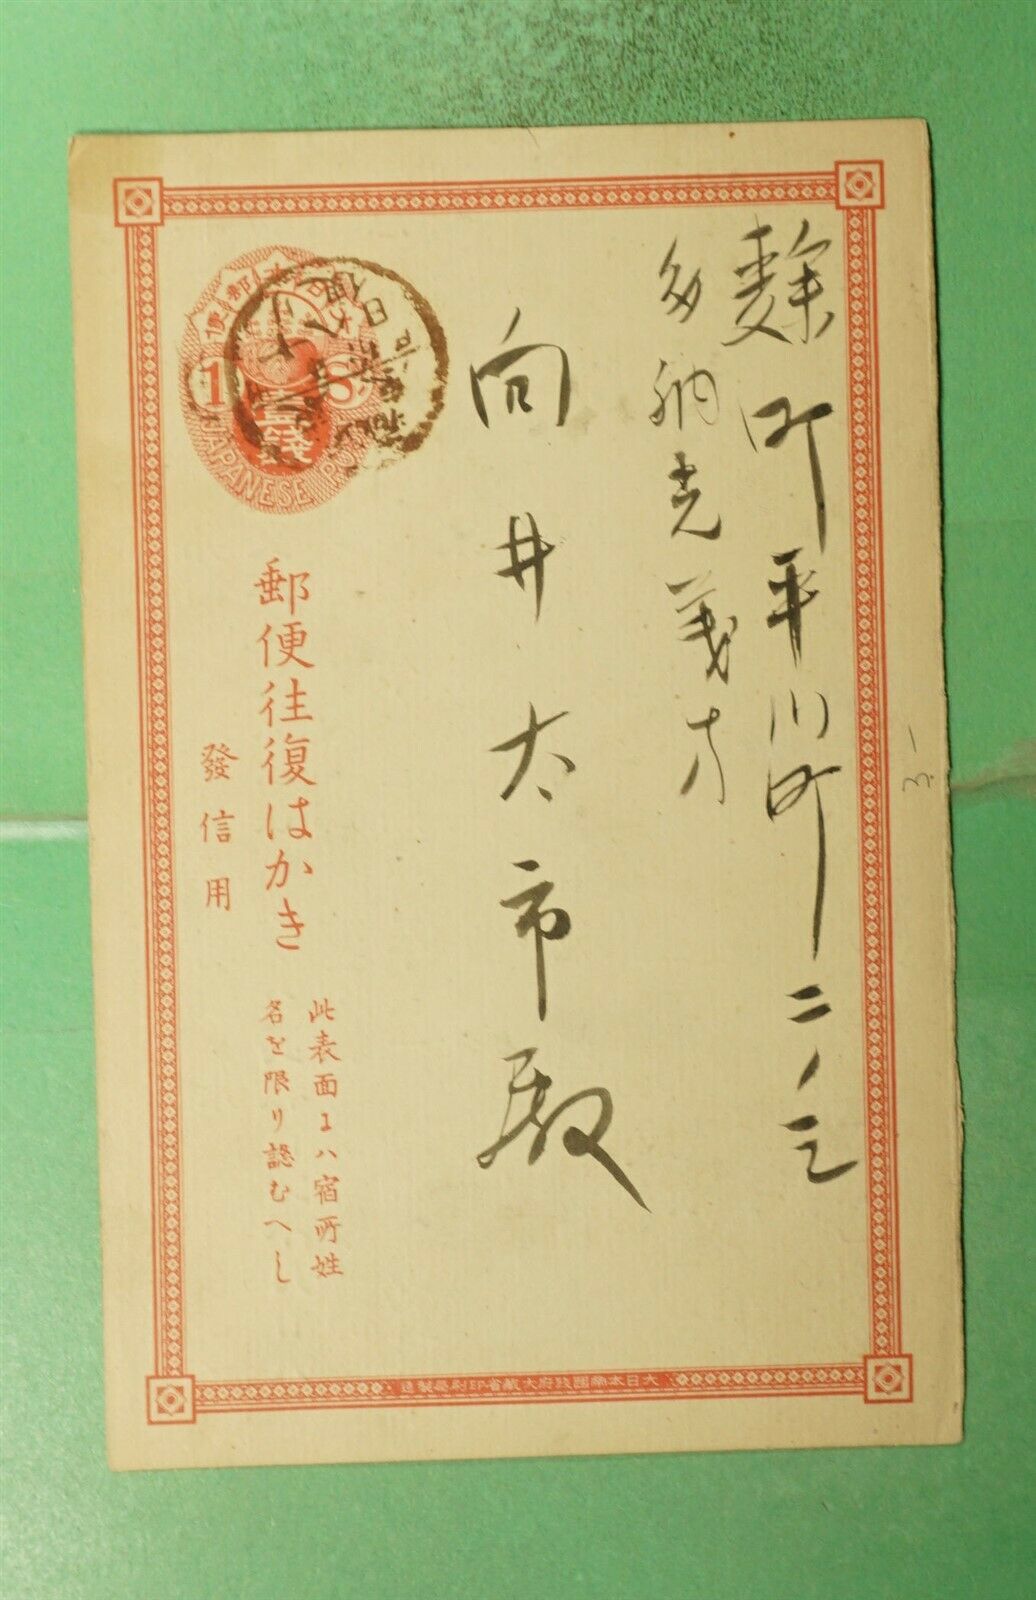 麹町平川町二ノ三
多納光義方
向井太市殿
大日本郵便
1 S
壹錢
JAPANESE POST
郵便往復はかき
發信用
此表面ハ宿所姓
名を限り認むへし
大日本帝國政府大藏省印刷局製造